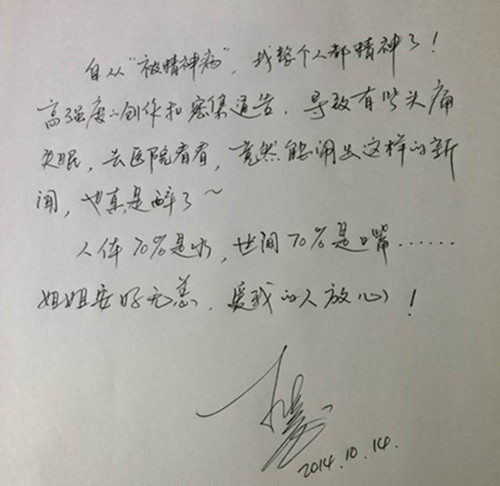 自从“被精神病”，我整个人都精神了！
高强度的创作和密集通告，导致有些头痛
失眠，去医院看看，竟然能闹出这样的新
闻，也真是醉了～
人体70%是水，世间70%是嘴……
姐姐安好无恙，爱我的人放心！
2014.10.14.